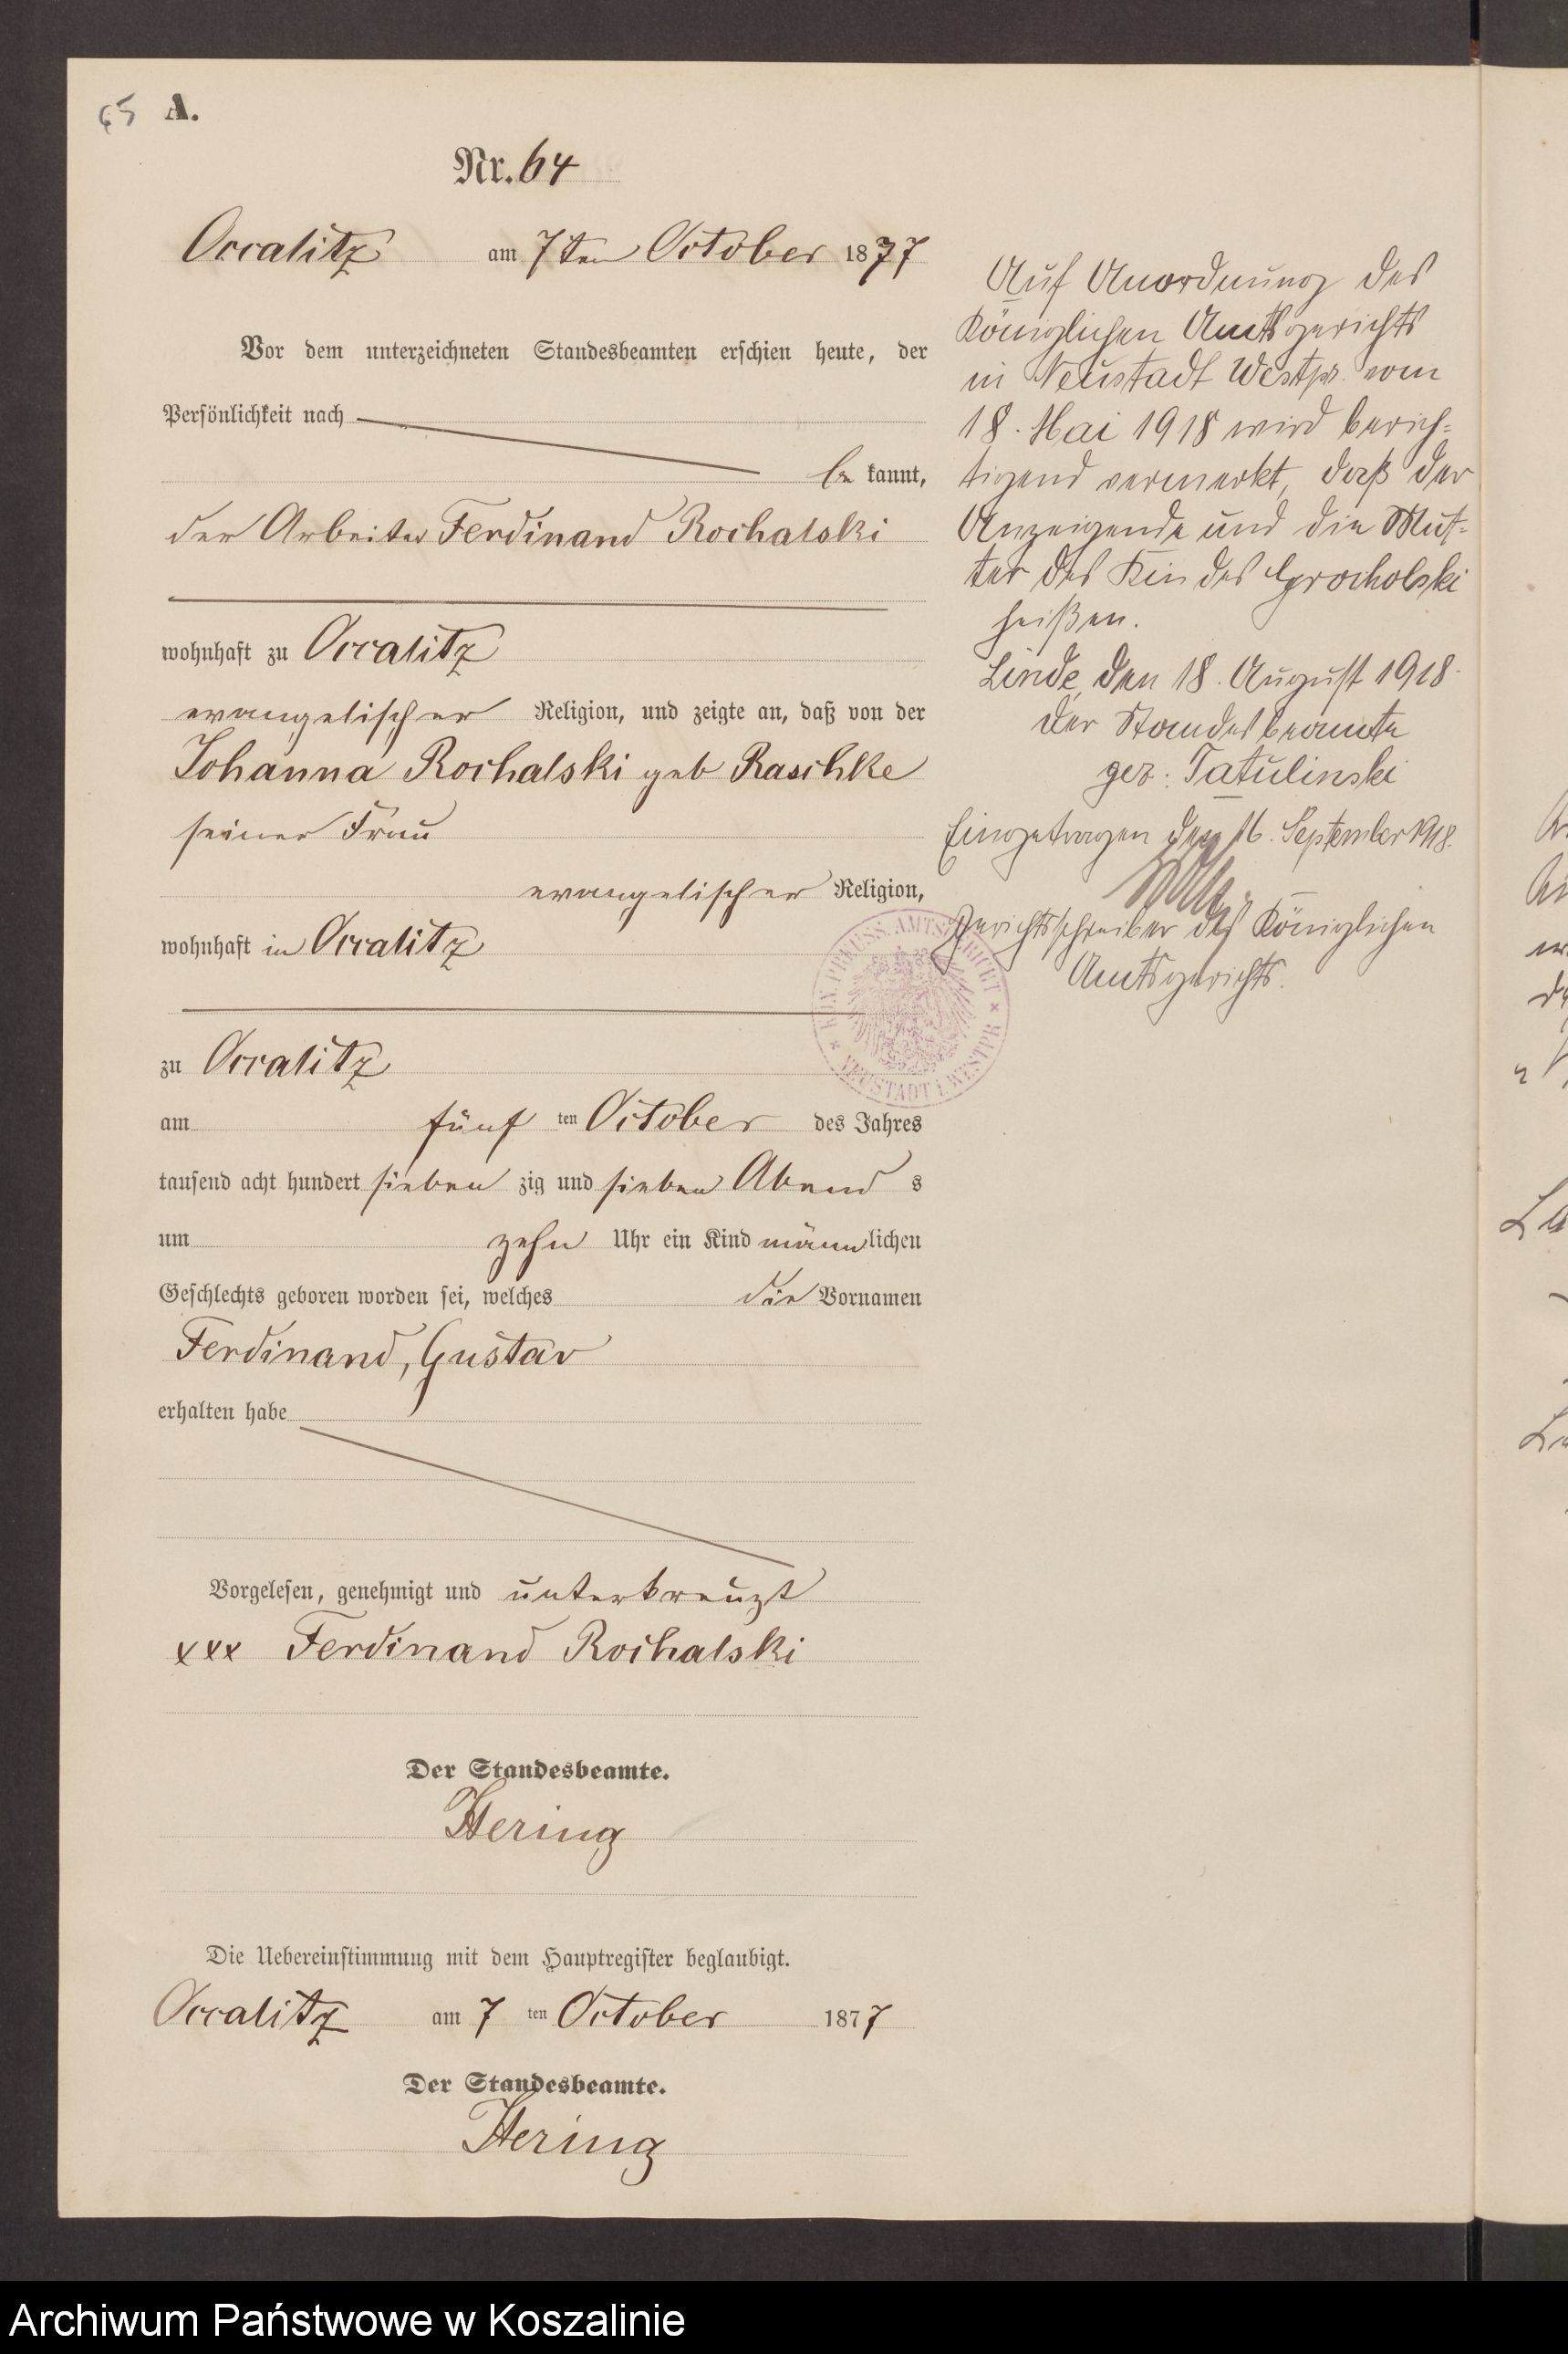 65 A.
Nr. 64
Occalitz am 7ten October 1877
Vor dem unterzeichneten Standesbeamten erschien heute, der
Persönlichkeit nach
be kannt,
der Arbeiter Ferdinand Rochalski
wohnhaft zu Occalitz
evangelischer Religion, und zeigte an, daß von der
Johanna Rochalski geb Raschke
seiner Frau
evangelischer Religion,
wohnhaft in Occalitz
zu Occalitz
am fünf ten October des Jahres
tausend acht hundert sieben zig und sieben Abend s
um zehn Uhr ein Kind männlichen
Geschlechts geboren worden sei, welches die Vornamen
Ferdinand, Gustav
erhalten habe
Vorgelesen, genehmigt und unterkreuzt
xxx Ferdinand Rochalski
Der Standesbeamte.
Hering
Die Uebereinstimmung mit dem Hauptregister beglaubigt.
Occalitz am 7 ten October 1877
Der Standesbeamte.
Hering
Auf Anordnung des
Königlichen Amtsgerichts
in Neustadt Westpr. vom
18. Mai 1918 wird berich=
tigend vermerkt, daß der
Anzeigende und die Mut=
ter des Kindes Grocholski
heißen.
Linde, den 18. August 1918.
Der Standesbeamte
gez: Tatulinski
Eingetragen den 16. September 1918.
Gerichtsschreiber des Königlichen
Amtsgerichts.
KGL. PREUSS. AMTSGERICHT
NEUSTADT I. WESTPR
Archiwum Państwowe w Koszalinie